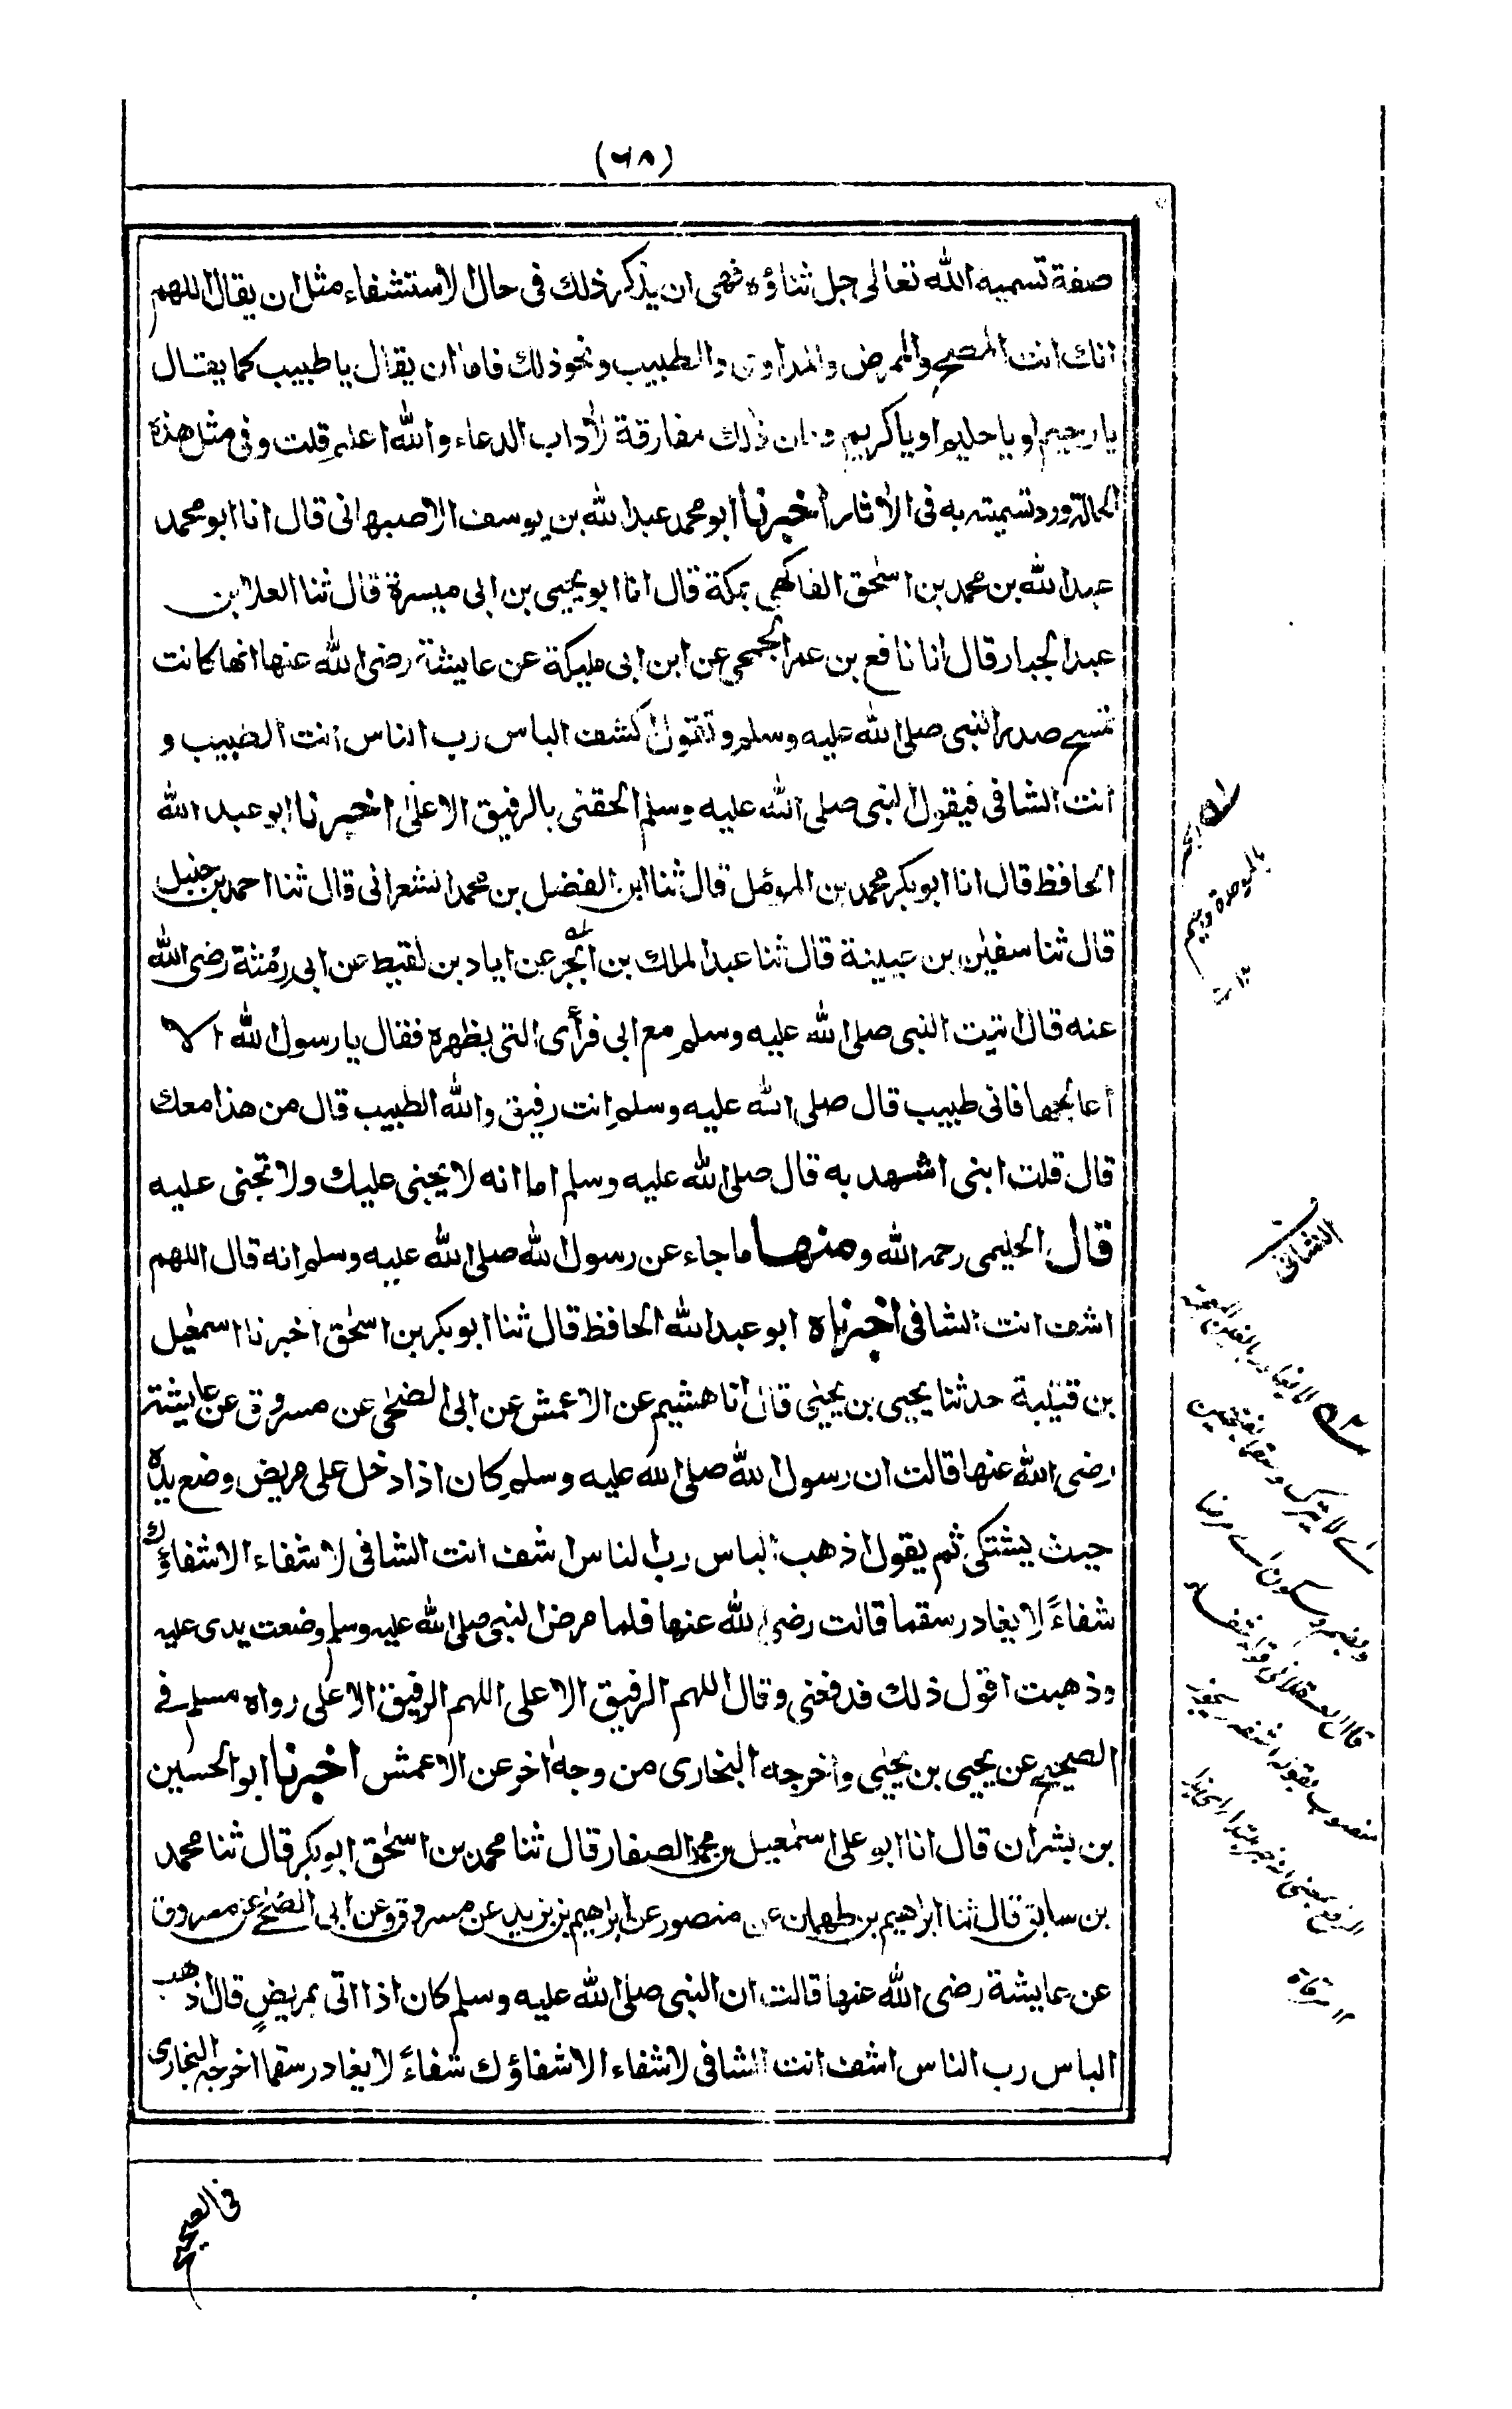 (٦٨)
صفة تسميه الله تعالى جل ثناؤه فهي ان يذكر ذلك فى حال الاستشفاء مثل ان يقال اللهم
انك انت المصحح والممرض والمداوى والطبيب ونحو ذلك فاما ان يقال يا طبيب كما يقال
يا رحيم او يا حليم او يا كريم فان ذلك مفارقة لأداب الدعاء والله اعلم قلت وفى مثل هذه
الحالة ورد تسميته به فى الأثار أخبرنا ابو محمد عبد الله بن يوسف الاصبهانى قال انا ابو محمد
عبد الله بن محمد بن اسحٰق الفاكهى بمكة قال انا ابو يحيى بن ابى ميسرة قال ثنا العلا بن
عبد الجبار قال انا نافع بن عمر الجمحى عن ابن ابى مليكة عن عايشة رضى الله عنها انها كانت
تمسح صدر النبى صلى الله عليه وسلم وتقول اكشف الباس رب الناس انت الطبيب و
انت الشافى فيقول النبى صلى الله عليه وسلم الحقنى بالرفيق الاعلى اخبرنا ابو عبد الله
الحافظ قال انا ابو بكر محمد بن المؤمل قال ثنا ابن الفضل بن محمد الشعرانى قال ثنا احمد بن حنبل
قال ثنا سفيٰن بن عيينة قال ثنا عبد الملك بن ابجر عن اياد بن لقيط عن ابى رمثة رضى الله
عنه قال اتيت النبى صلى الله عليه وسلم مع ابى فرأى التى بظهره فقال يا رسول الله الا
أعالجها فانى طبيب قال صلى الله عليه وسلم انت رفيق والله الطبيب قال من هذا معك
قال قلت ابنى اشهد به قال صلى الله عليه وسلم اما انه لا يجنى عليك ولا تجنى عليه
قال الحليمى رحمه الله ومنها ما جاء عن رسول الله صلى الله عليه وسلم انه قال اللهم
اشف انت الشافى اخبرناه ابو عبد الله الحافظ قال ثنا ابو بكر بن اسحٰق اخبرنا اسمٰعيل
بن قتيبة حدثنا يحيى بن يحيى قال انا هشيم عن الاعمش عن ابى الضحى عن مسروق عن عايشة
رضى الله عنها قالت ان رسول الله صلى الله عليه وسلم كان اذا دخل على مريض وضع يده
حيث يشتكى ثم يقول اذهب الباس رب الناس اشف انت الشافى لا شفاء الا شفاءك
شفاءً لا يغادر سقما قالت رضى الله عنها فلما مرض النبى صلى الله عليه وسلم وضعت يدى عليه
وذهبت اقول ذلك فدفعنى وقال اللهم الرفيق الاعلى اللهم الرفيق الاعلى رواه مسلم فى
الصحيح عن يحيى بن يحيى واخرجه البخارى من وجه اٰخر عن الاعمش اخبرنا ابو الحسين
بن بشران قال انا ابو على اسمٰعيل بن محمد الصفار قال ثنا محمد بن اسحٰق ابو بكر قال ثنا محمد
بن سابق قال ثنا ابراهيم بن طهمان عن منصور عن ابراهيم بن يزيد عن مسروق وعن ابى الضحى عن مسروق
عن عايشة رضى الله عنها قالت ان النبى صلى الله عليه وسلم كان اذا اتى بمريض قال اذهب
الباس رب الناس اشف انت الشافى لا شفاء الا شفاؤك شفاءً لا يغادر سقما اخرجه البخارى
فى الصحيح
بالموحدة وجيم
الشافى